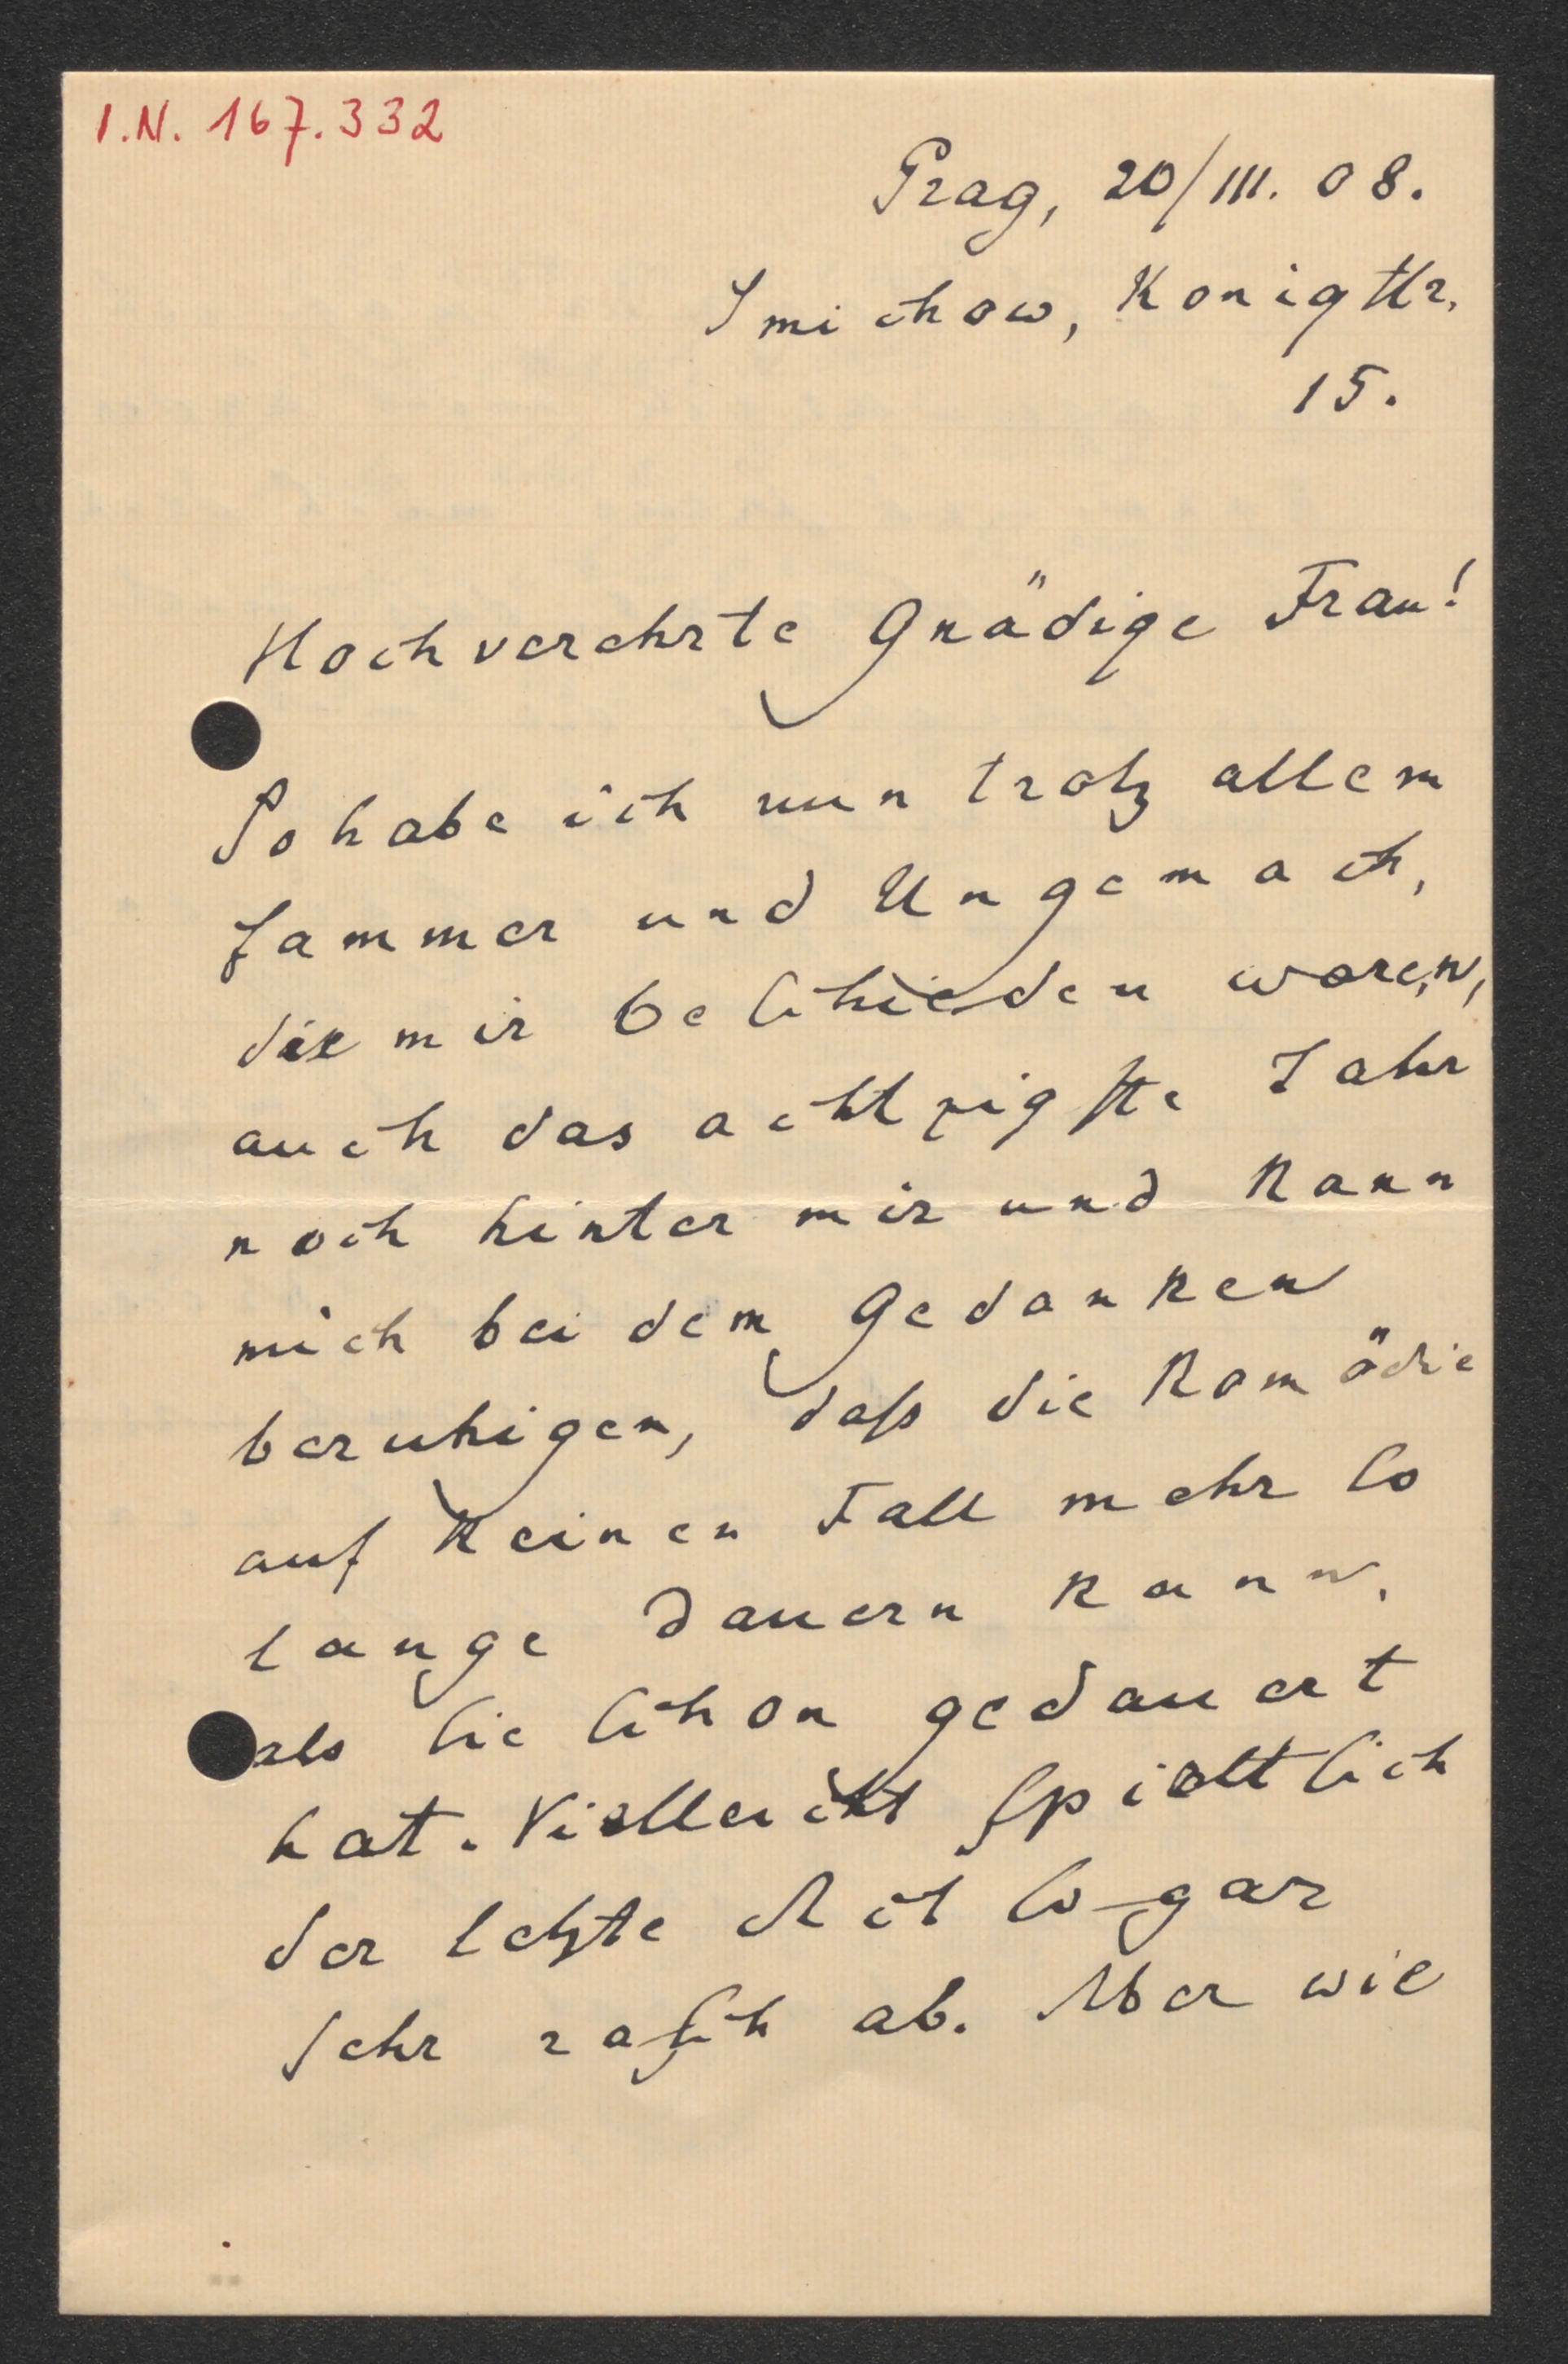 I.N. 167.332
Prag, 20/III. 08.
Smichow, Konigstr.
15.
Hochverehrte Gnädige Frau!
So habe ich nun trotz allem
Jammer und Ungemach,
die mir beschieden waren,
auch das achtzigste Jahr
noch hinter mir und kann
mich bei dem Gedanken
beruhigen, dass die Komödie
auf keinen Fall mehr so
lange dauern kann,
als sie schon gedauert
hat. Vielleicht spielt sich
der letzte Act sogar
sehr rasch ab. Aber wie